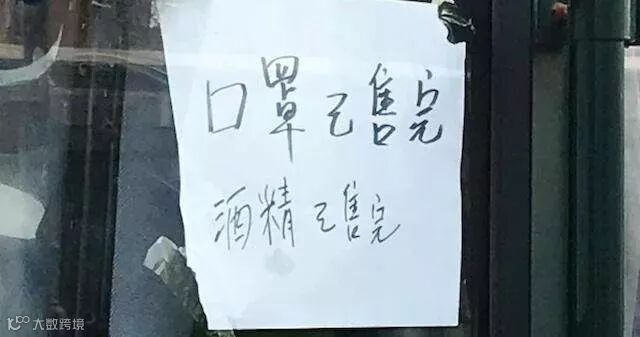 口罩已售完
酒精已售完
大数跨境